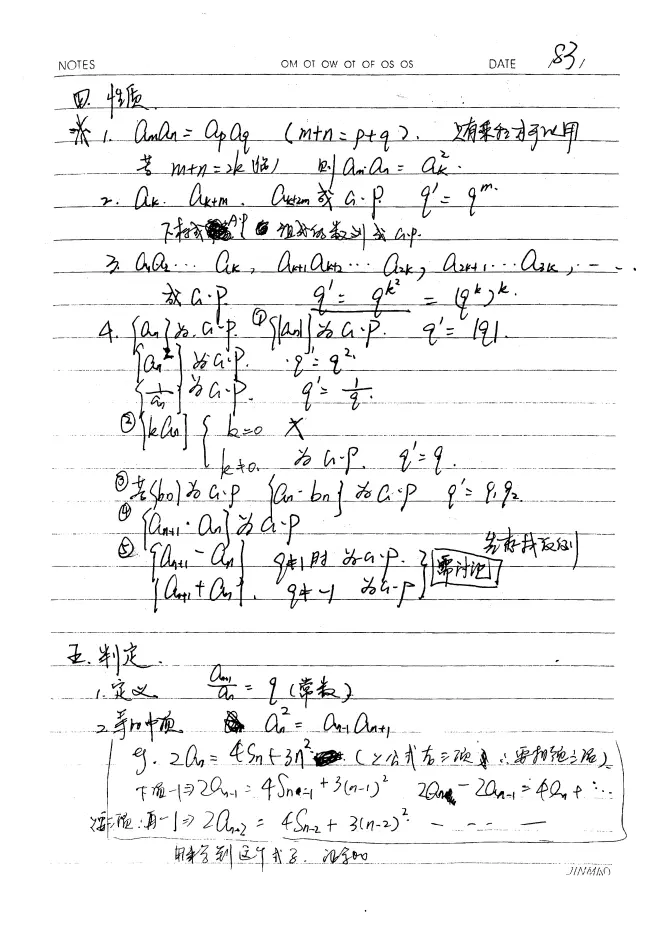 NOTES OM OT OW OT OF OS OS DATE 83/
四. 性质
※ 1. aₘaₙ = aₚa_q (m+n=p+q). 只有乘积才可以用
若 m+n=2k 则 aₘ·aₙ = aₖ².
2. aₖ. aₖ₊ₘ. aₖ₊₂ₘ 成 G·P. q' = qᵐ.
下标成 A·P 相对的数列成 G·P.
3. a₁a₂… aₖ, aₖ₊₁aₖ₊₂… a₂ₖ, a₂ₖ₊₁…a₃ₖ, …
成 G·P. q' = q^{k²} = (qᵏ)ᵏ.
4. {aₙ}为 G·P. ① {|aₙ|}为 G·P. q' = |q|.
{aₙ²} 为 G·P. q' = q².
{1/aₙ} 为 G·P. q' = 1/q.
② {kaₙ} { k=0 ×
k≠0. 为 G·P. q' = q.
③ 若{bₙ}为 G·P {aₙ·bₙ} 为 G·P q' = q₁q₂.
④ {aₙ₊₁·aₙ}为 G·P
⑤ {aₙ₊₁-aₙ} q≠1时 为 G·P.
{aₙ₊₁+aₙ}. q≠-1 为 G·P } 需讨论
五. 判定.
1. 定义 aₙ₊₁/aₙ = q (常数)
2. 等比中项 aₙ² = aₙ₋₁aₙ₊₁
eg. 2aₙ = 4Sₙ+3n²
下项-1⇒2aₙ₋₁ = 4Sₙ₋₁+3(n-1)² 2aₙ-2aₙ₋₁ = 4aₙ+…
再-1⇒ 2aₙ₊₂ = 4Sₙ₋₂+3(n-2)². - - - —
JINMAO